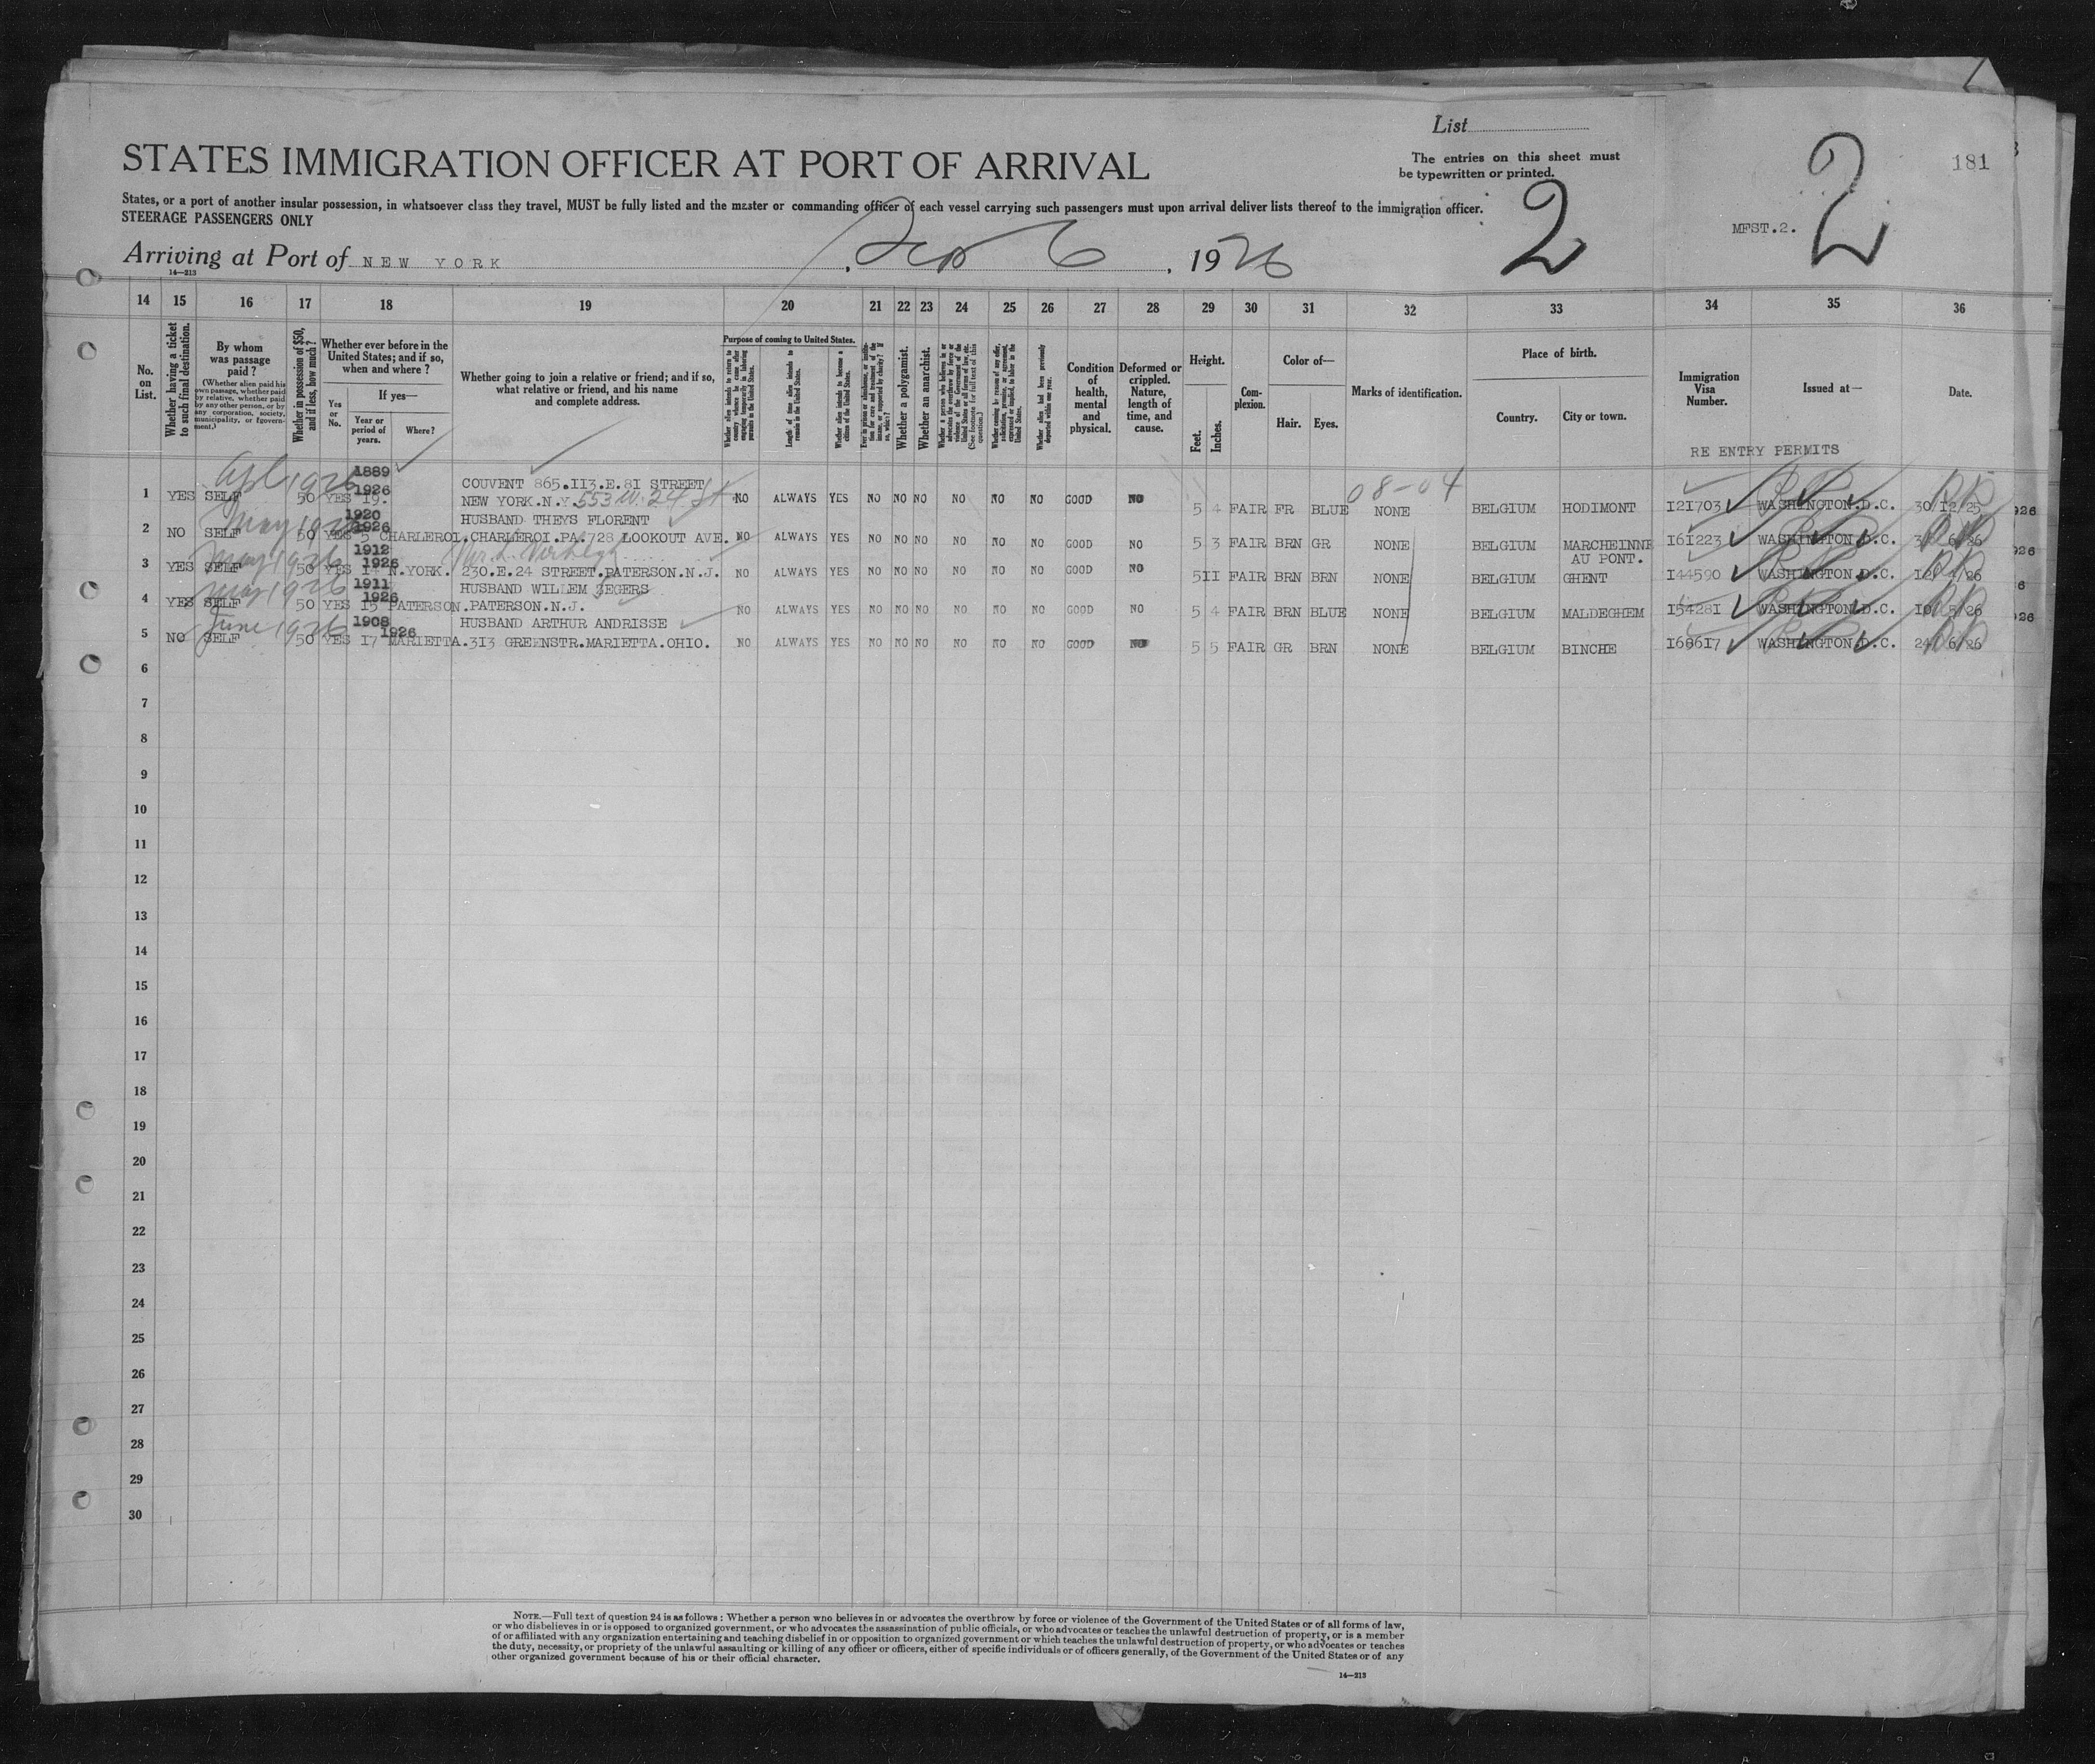 List
STATES IMMIGRATION OFFICER AT PORT OF ARRIVAL
The entries on this sheet must
be typewritten or printed.
2
2
181
MFST.2.
States, or a port of another insular possession, in whatsoever class they travel, MUST be fully listed and the master or commanding officer of each vessel carrying such passengers must upon arrival deliver lists thereof to the immigration officer.
STEERAGE PASSENGERS ONLY
Arriving at Port of NEW YORK , 6 , 1926
14—213
14 15 16 17 18 19 20 21 22 23 24 25 26 27 28 29 30 31 32 33 34 35 36
No. on List.
Whether having a ticket to such final destination.
By whom was passage paid?
(Whether alien paid his own passage, whether paid by relative, whether paid by any other person, or by any corporation, society, municipality, or government.)
Whether in possession of $50, and if less, how much?
Whether ever before in the United States; and if so, when and where?
If yes—
Yes or No.
Year or period of years.
Where?
Whether going to join a relative or friend; and if so, what relative or friend, and his name and complete address.
Purpose of coming to United States.
Whether alien intends to return to country whence he came after engaging temporarily in laboring pursuits in the United States.
Length of time alien intends to remain in the United States.
Whether alien intends to become a citizen of the United States.
Whether a polygamist.
Whether an anarchist.
Condition of health, mental and physical.
Deformed or crippled. Nature, length of time, and cause.
Height.
Feet.
Inches.
Complexion.
Color of—
Hair.
Eyes.
Marks of identification.
Place of birth.
Country.
City or town.
Immigration Visa Number.
Issued at—
Date.
RE ENTRY PERMITS
Apl 1926 1889 COUVENT 865.113.E.81 STREET 08-04
1 YES SELF 50 YES 19. 1926 NEW YORK.N.Y. 553 W. 24 St NO ALWAYS YES NO NO NO NO NO NO GOOD NO 5 4 FAIR FR BLUE NONE BELGIUM HODIMONT 121703 WASHINGTON.D.C. 30/12/25
May 1926 1920 HUSBAND THEYS FLORENT
2 NO SELF 50 YES 5 1926 CHARLEROI.CHARLEROI.PA.728 LOOKOUT AVE. NO ALWAYS YES NO NO NO NO NO NO GOOD NO 5 3 FAIR BRN GR NONE BELGIUM MARCHEINNE AU PONT. 161223 WASHINGTON.D.C.
May 1926 1912
3 YES SELF 50 YES 14 1926 N.YORK. 230.E.24 STREET.PATERSON.N.J. NO ALWAYS YES NO NO NO NO NO NO GOOD NO 5 11 FAIR BRN BRN NONE BELGIUM GHENT 144590 WASHINGTON.D.C.
May 1926 1911 HUSBAND WILLEM SEGERS
4 YES SELF 50 YES 15 1926 PATERSON.PATERSON.N.J. NO ALWAYS YES NO NO NO NO NO NO GOOD NO 5 4 FAIR BRN BLUE NONE BELGIUM MALDEGHEM 154281 WASHINGTON.D.C.
June 1926 1908 HUSBAND ARTHUR ANDRISSE
5 NO SELF 50 YES 17 1926 MARIETTA.313 GREENSTR.MARIETTA.OHIO. NO ALWAYS YES NO NO NO NO NO NO GOOD NO 5 5 FAIR GR BRN NONE BELGIUM BINCHE 168617 WASHINGTON.D.C. 24/6/26
6
7
8
9
10
11
12
13
14
15
16
17
18
19
20
21
22
23
24
25
26
27
28
29
30
NOTE.—Full text of question 24 is as follows: Whether a person who believes in or advocates the overthrow by force or violence of the Government of the United States or of all forms of law,
or who disbelieves in or is opposed to organized government, or who advocates the assassination of public officials, or who advocates or teaches the unlawful destruction of property, or is a member
of or affiliated with any organization entertaining and teaching disbelief in or opposition to organized government or which teaches the unlawful destruction of property, or who advocates or teaches
the duty, necessity, or propriety of the unlawful assaulting or killing of any officer or officers, either of specific individuals or of officers generally, of the Government of the United States or of any
other organized government because of his or their official character.
14—213